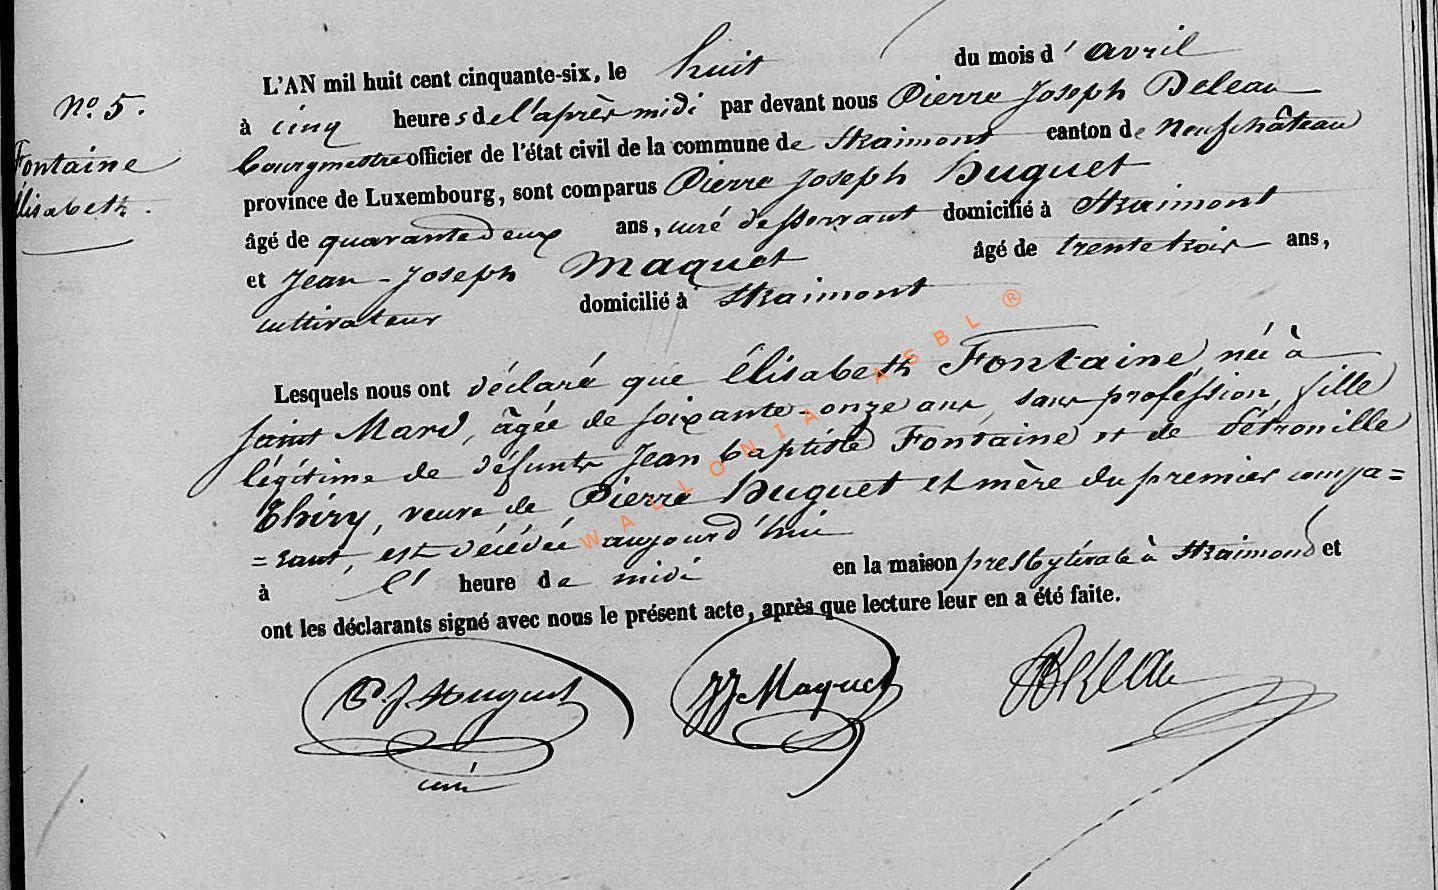 L'AN mil huit cent cinquante-six, le huit du mois d'avril
N° 5.
à cinq heures de l'après midi par devant nous Pierre Joseph Deleau
Fontaine
Élisabeth.
bourgmestre officier de l'état civil de la commune de Straimont canton de Neufchâteau
province de Luxembourg, sont comparus Pierre Joseph Huguet
âgé de quarante deux ans, curé desservant domicilié à Straimont
et Jean-Joseph Maquet âgé de trente trois ans,
cultivateur domicilié à Straimont
Lesquels nous ont déclaré que Élisabeth Fontaine, née à
Saint Mard, âgée de soixante-onze ans, sans profession, fille
légitime de défunts Jean baptiste Fontaine et de Pétronille
Thiry, veuve de Pierre Huguet et mère du premier compa=
=rant, est décédée aujourd'hui
à l' heure de midi en la maison presbytérale à Straimont et
ont les déclarants signé avec nous le présent acte, après que lecture leur en a été faite.
P. J. Huguet JJ Maquet Deleau
curé
WALLONIA ASBL ®